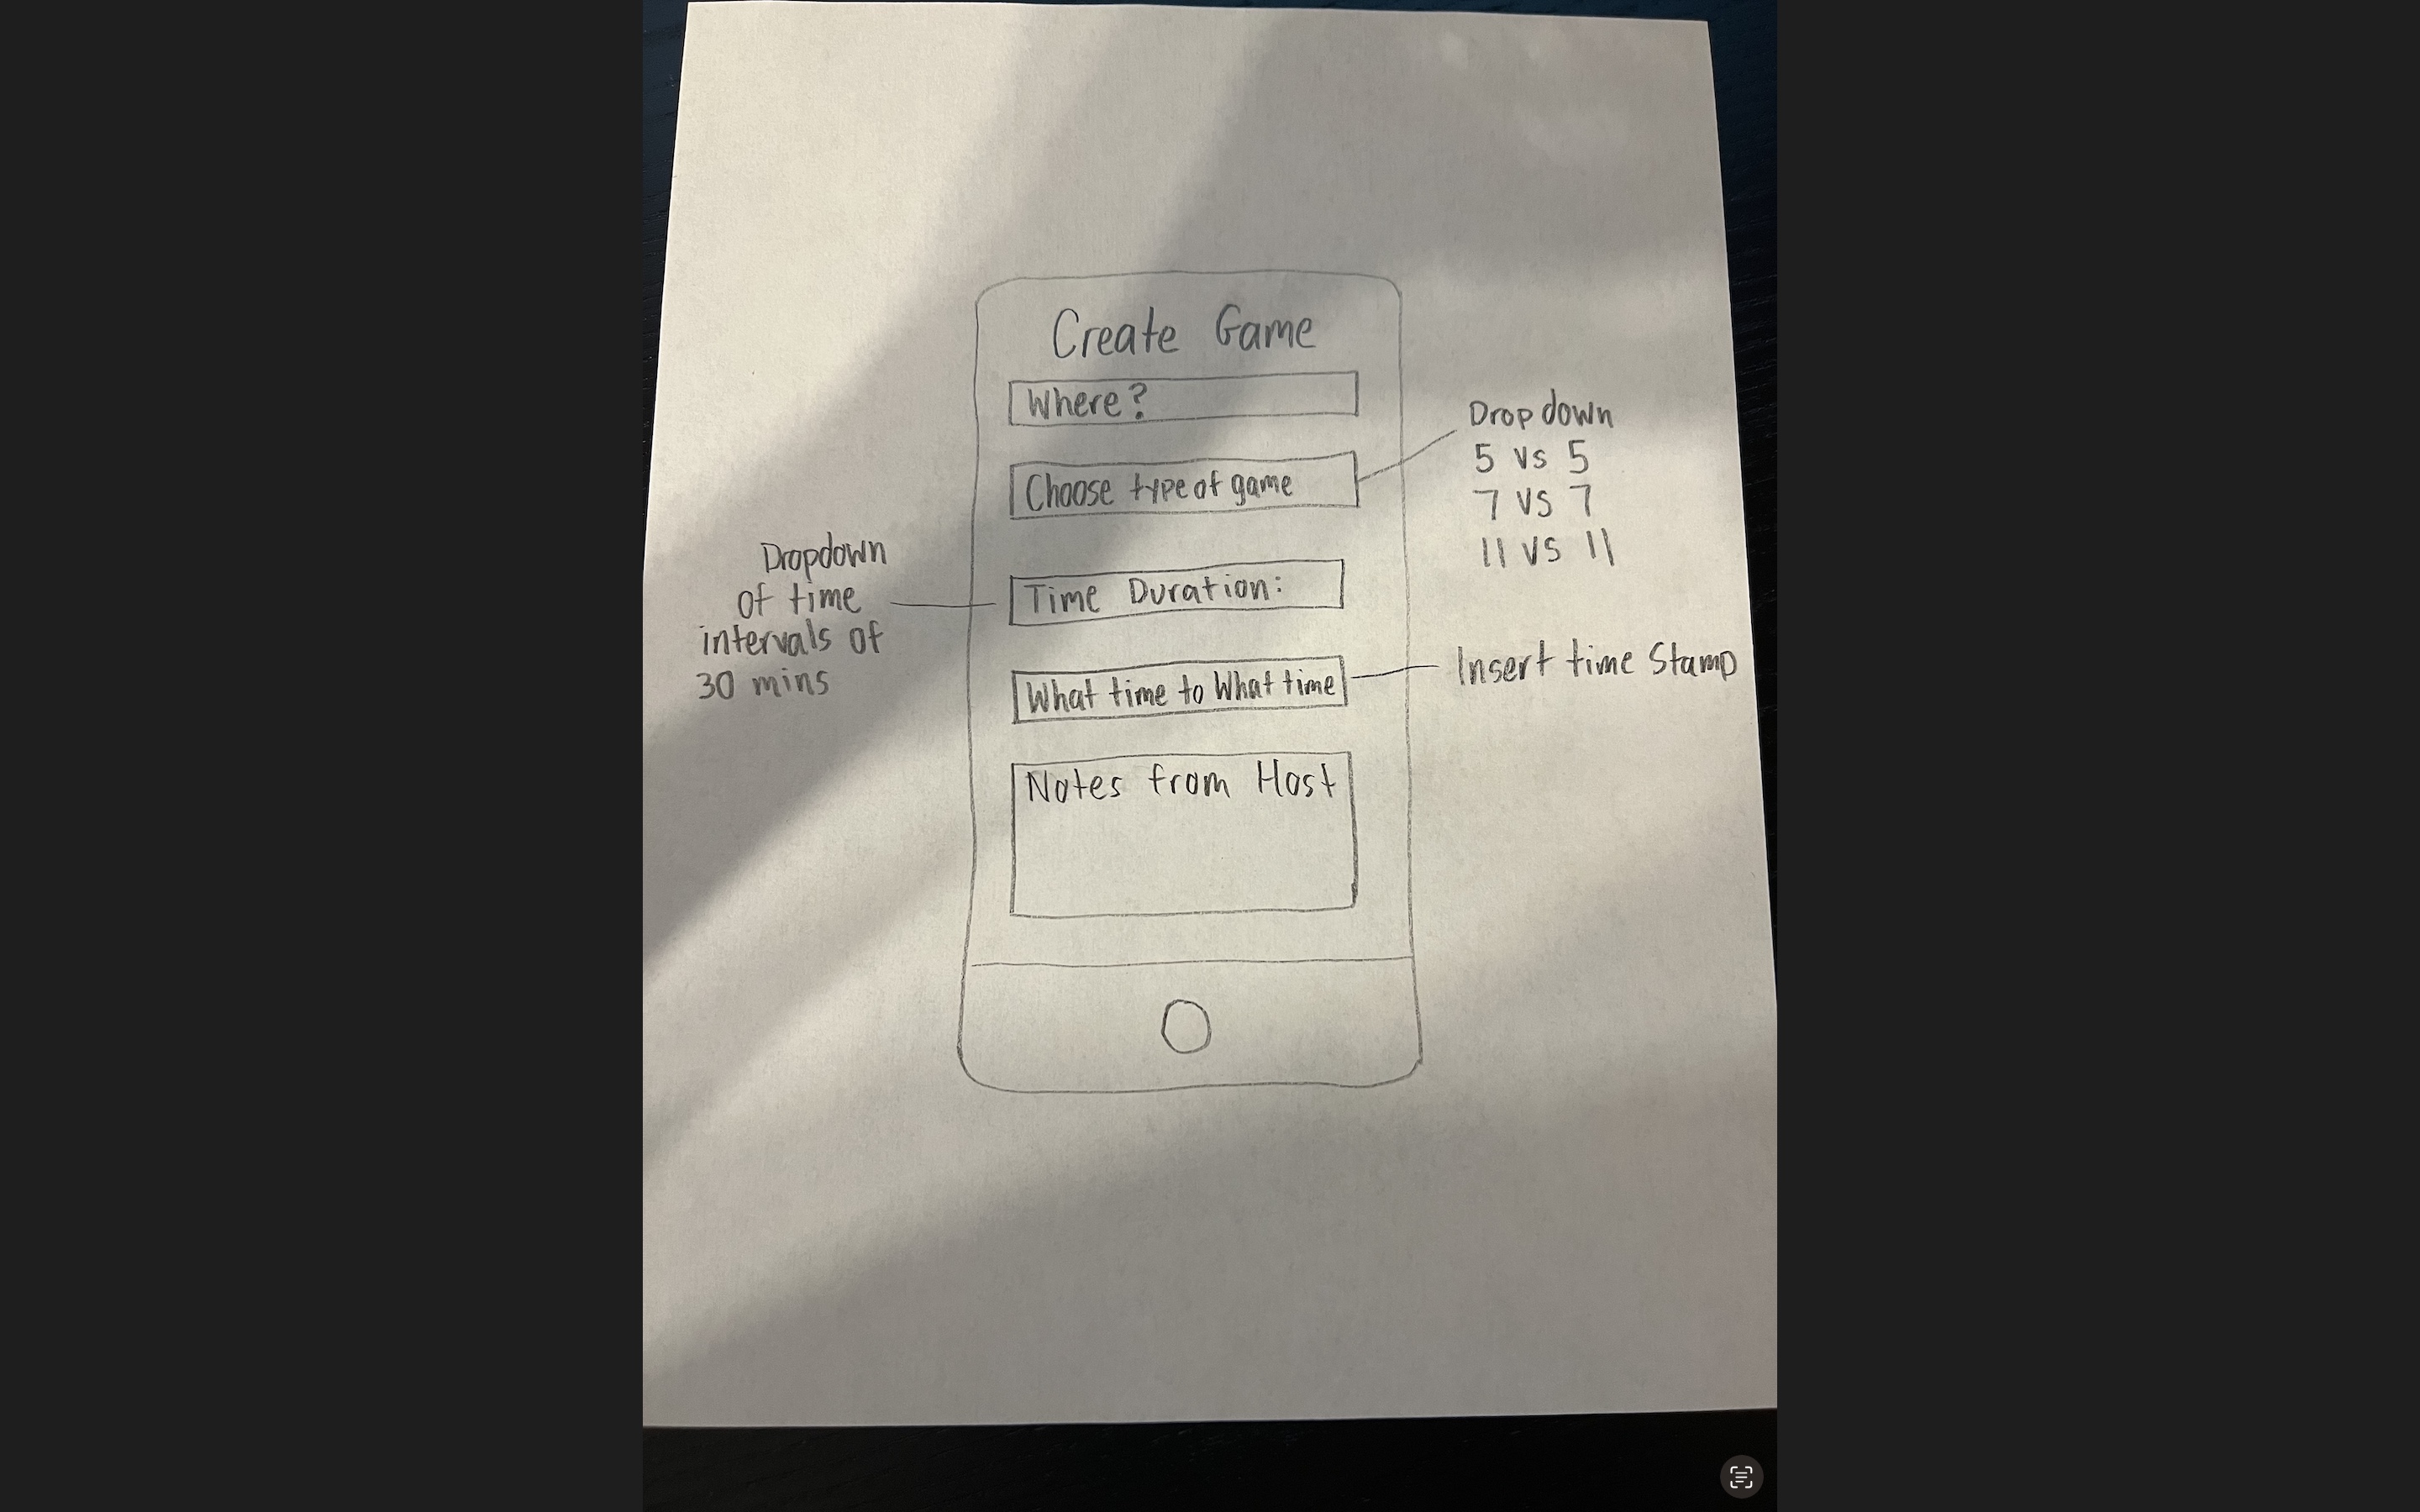 Create Game
Where?
Choose type of game
Drop down
5 vs 5
7 vs 7
11 vs 11
Dropdown
of time
intervals of
30 mins
Time Duration:
What time to What time
Insert time Stamp
Notes from Host